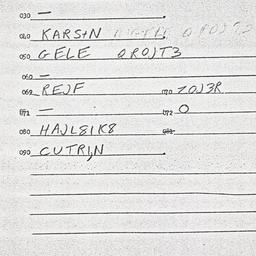 030 —
040 KARSTN
050 GELE QROJT3
060 —
062 REJF 070 ZOJ3R
071 — 072 O
080 HAJL8IK8 082
090 CUTRI,N